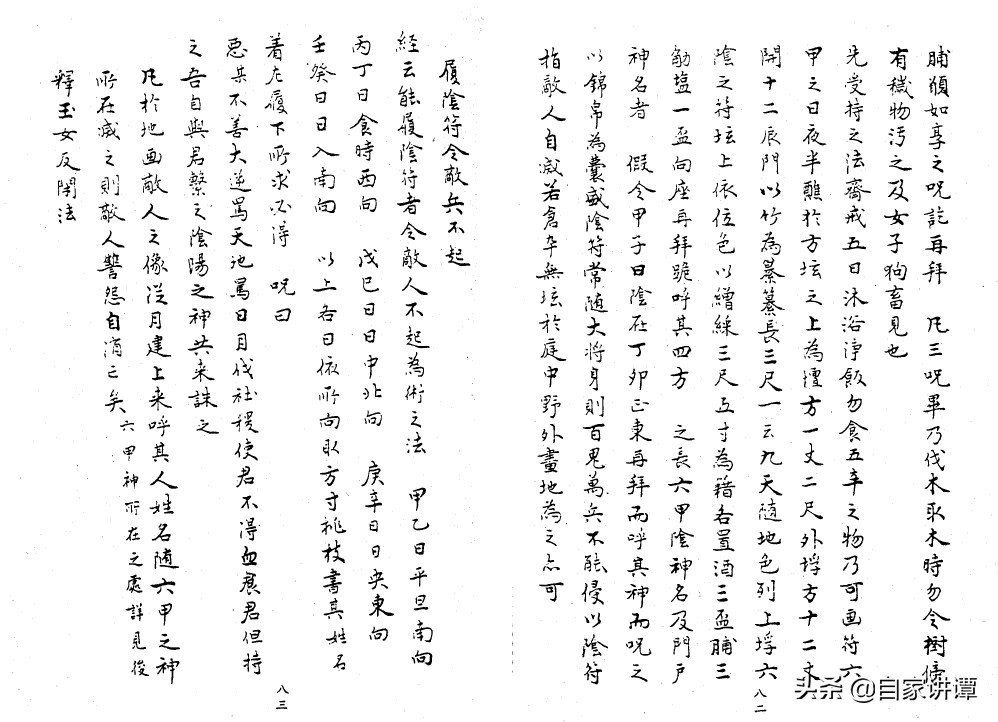 脯願如享之呪訖再拜　凡三呪畢乃伐木取木時勿令樹倏
有穢物污之及女子狗畜見也
先受持之法齋戒五日沐浴淨飯勿食五辛之物乃可画符六
甲之日夜半醮於方坛之上為壇方一丈二尺外垺方十二丈
開十二辰門以竹為纂纂長三尺一云九天随地色列上垺六
陰之符坛上依位色以繒綵三尺五寸為籍各置酒三盃脯三
觔塩一盃向座再拜跪呼其四方　之長六甲陰神名及門戶
神名者　假令甲子日陰在丁卯正東再拜而呼其神而呪之
以錦帛為囊盛陰符常随大將身則百鬼萬兵不能侵以陰符
指敵人自滅若倉卒無坛於庭中野外畫地為之亦可
八二
履陰符令敵兵不起
經云能履陰符者令敵人不起為術之法　甲乙日平旦南向
丙丁日食時西向　戊巳日日中北向　庚辛日日央東向
壬癸日日入南向　以上各日依所向取方寸桃枝書其姓名
着左履下所求必得　呪曰
惡某不善大逆罵天地罵日月伐社稷使君不得血衰君但持
之吾自與君繫之陰陽之神共来誅之
凡於地画敵人之像從月建上来呼其人姓名随六甲之神
所在滅之則敵人讐怨自消亡矣　六甲神所在之處詳見後
釋玉女反閉法
八三
头条 @自家讲谭